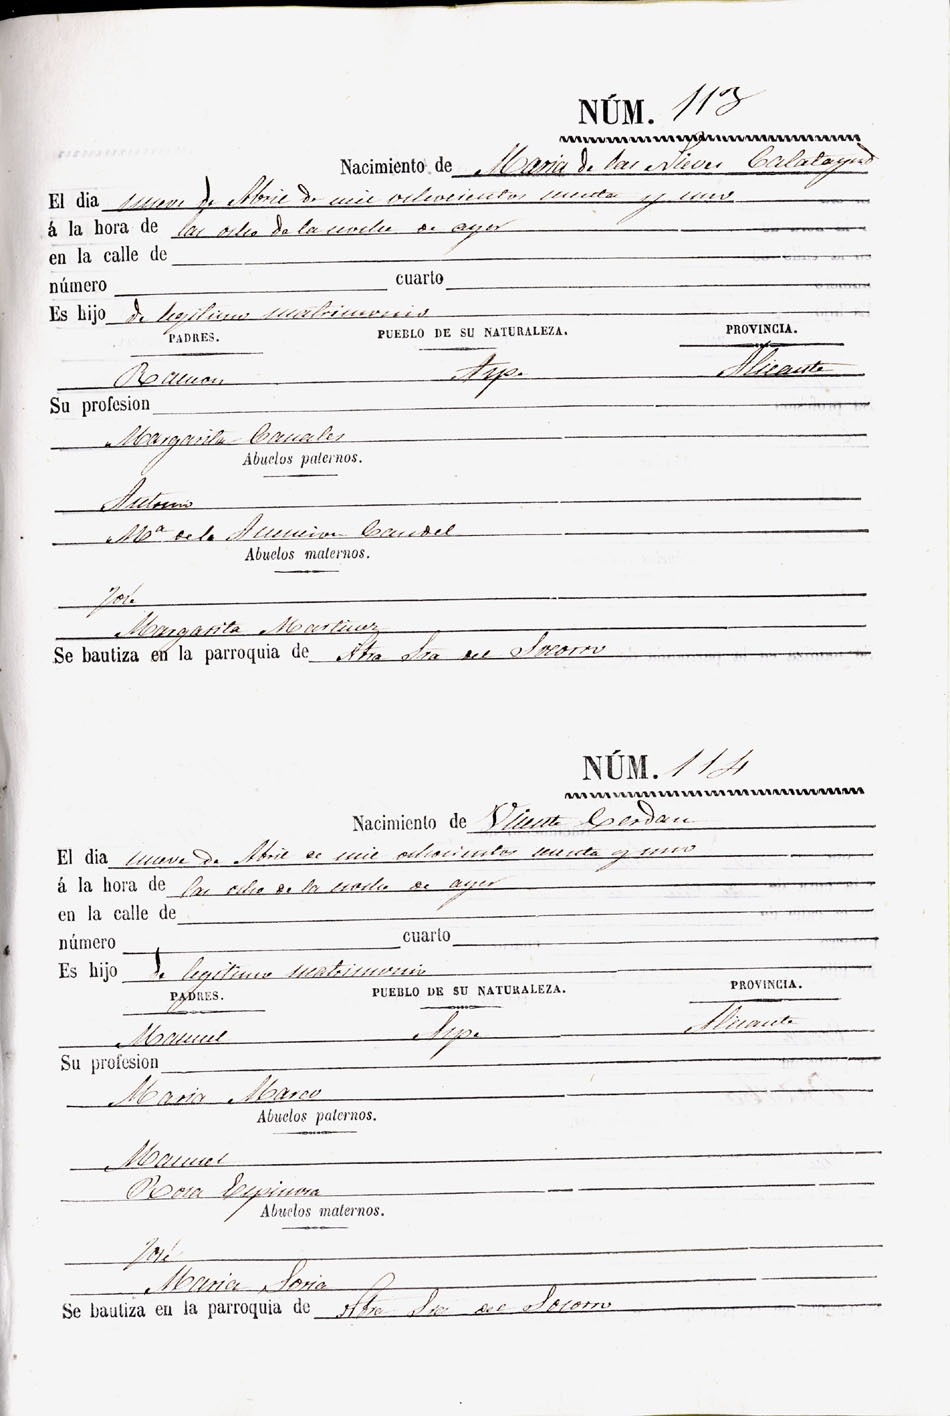 NÚM. 113
Nacimiento de Maria de las Nieves Calatayud
El dia nueve de Abril de mil ochocientos setenta y uno
á la hora de las ocho de la noche de ayer
en la calle de
número cuarto
Es hijo de legitimo matrimonio
PADRES. PUEBLO DE SU NATURALEZA. PROVINCIA.
Ramon Asp. Alicante
Su profesion
Margarita Canales
Abuelos paternos.
Antonio
Mª de la Asuncion Candel
Abuelos maternos.
José
Margarita Martinez
Se bautiza en la parroquia de Ntra Sra del Socorro
NÚM. 114
Nacimiento de Vicente Cerdan
El dia nueve de Abril de mil ochocientos setenta y uno
á la hora de las ocho de la noche de ayer
en la calle de
número cuarto
Es hijo de legitimo matrimonio
PADRES. PUEBLO DE SU NATURALEZA. PROVINCIA.
Manuel Asp. Alicante
Su profesion
Maria Marco
Abuelos paternos.
Manuel
Rosa Espinosa
Abuelos maternos.
José
Maria Soria
Se bautiza en la parroquia de Ntra Sra del Socorro